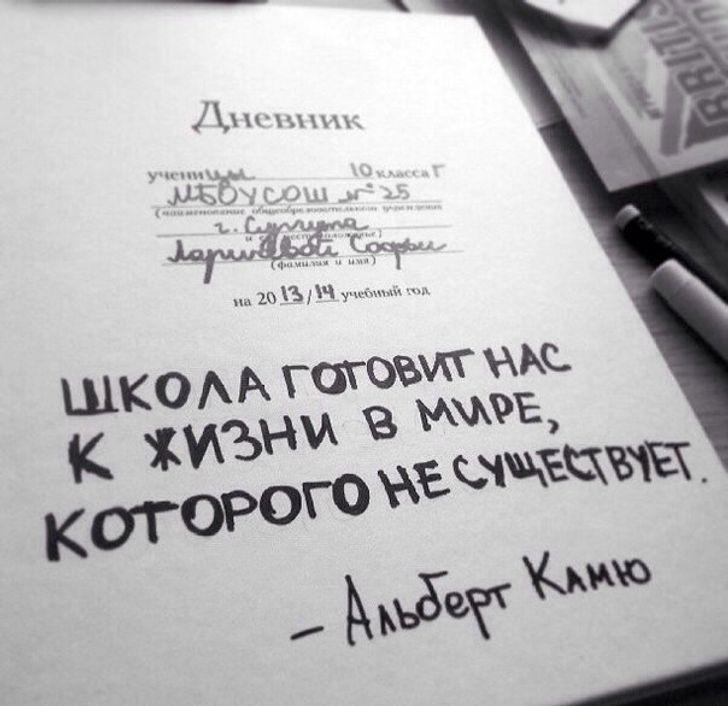 Дневник
ученицы 10 класса Г
МБОУСОШ №25
(наименование общеобразовательного учреждения
г. Сургута
и местоположение)
Ларичевой Софьи
(фамилия и имя)
на 20 13/14 учебный год
ШКОЛА ГОТОВИТ НАС
К ЖИЗНИ В МИРЕ,
КОТОРОГО НЕ СУЩЕСТВУЕТ.
– Альберт Камю
BRITIS